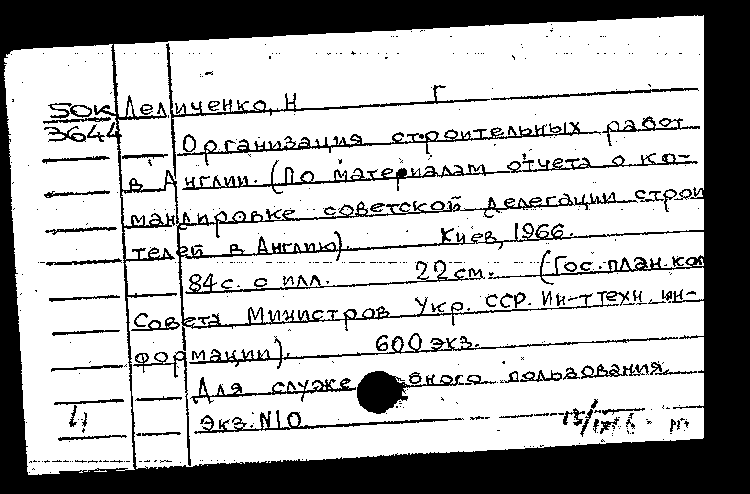 50К Леличенко, Н Г
3644
Организация строительных работ
в Англии. (По материалам отчета о ко-
мандировке советской делегации строи
телей в Англию). Киев, 1966.
84с. с илл. 22 см. (Гос. план. ком
Совета Министров Укр. ССР. Ин-т техн. ин-
формации). 600 экз.
Для служебного пользования
Экз. N10
4